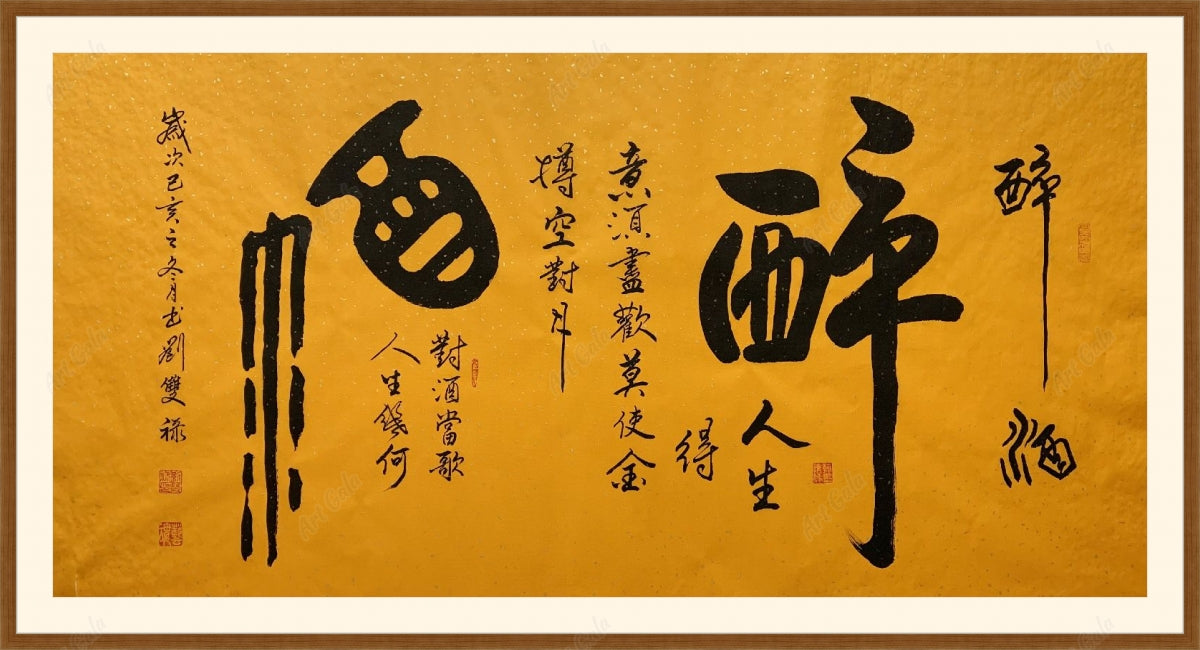 醉酒
醉
人生
得
意須盡歡莫使金
樽空對月
酒
對酒當歌
人生幾何
歲次己亥之冬月書劉雙祿
Art Gala